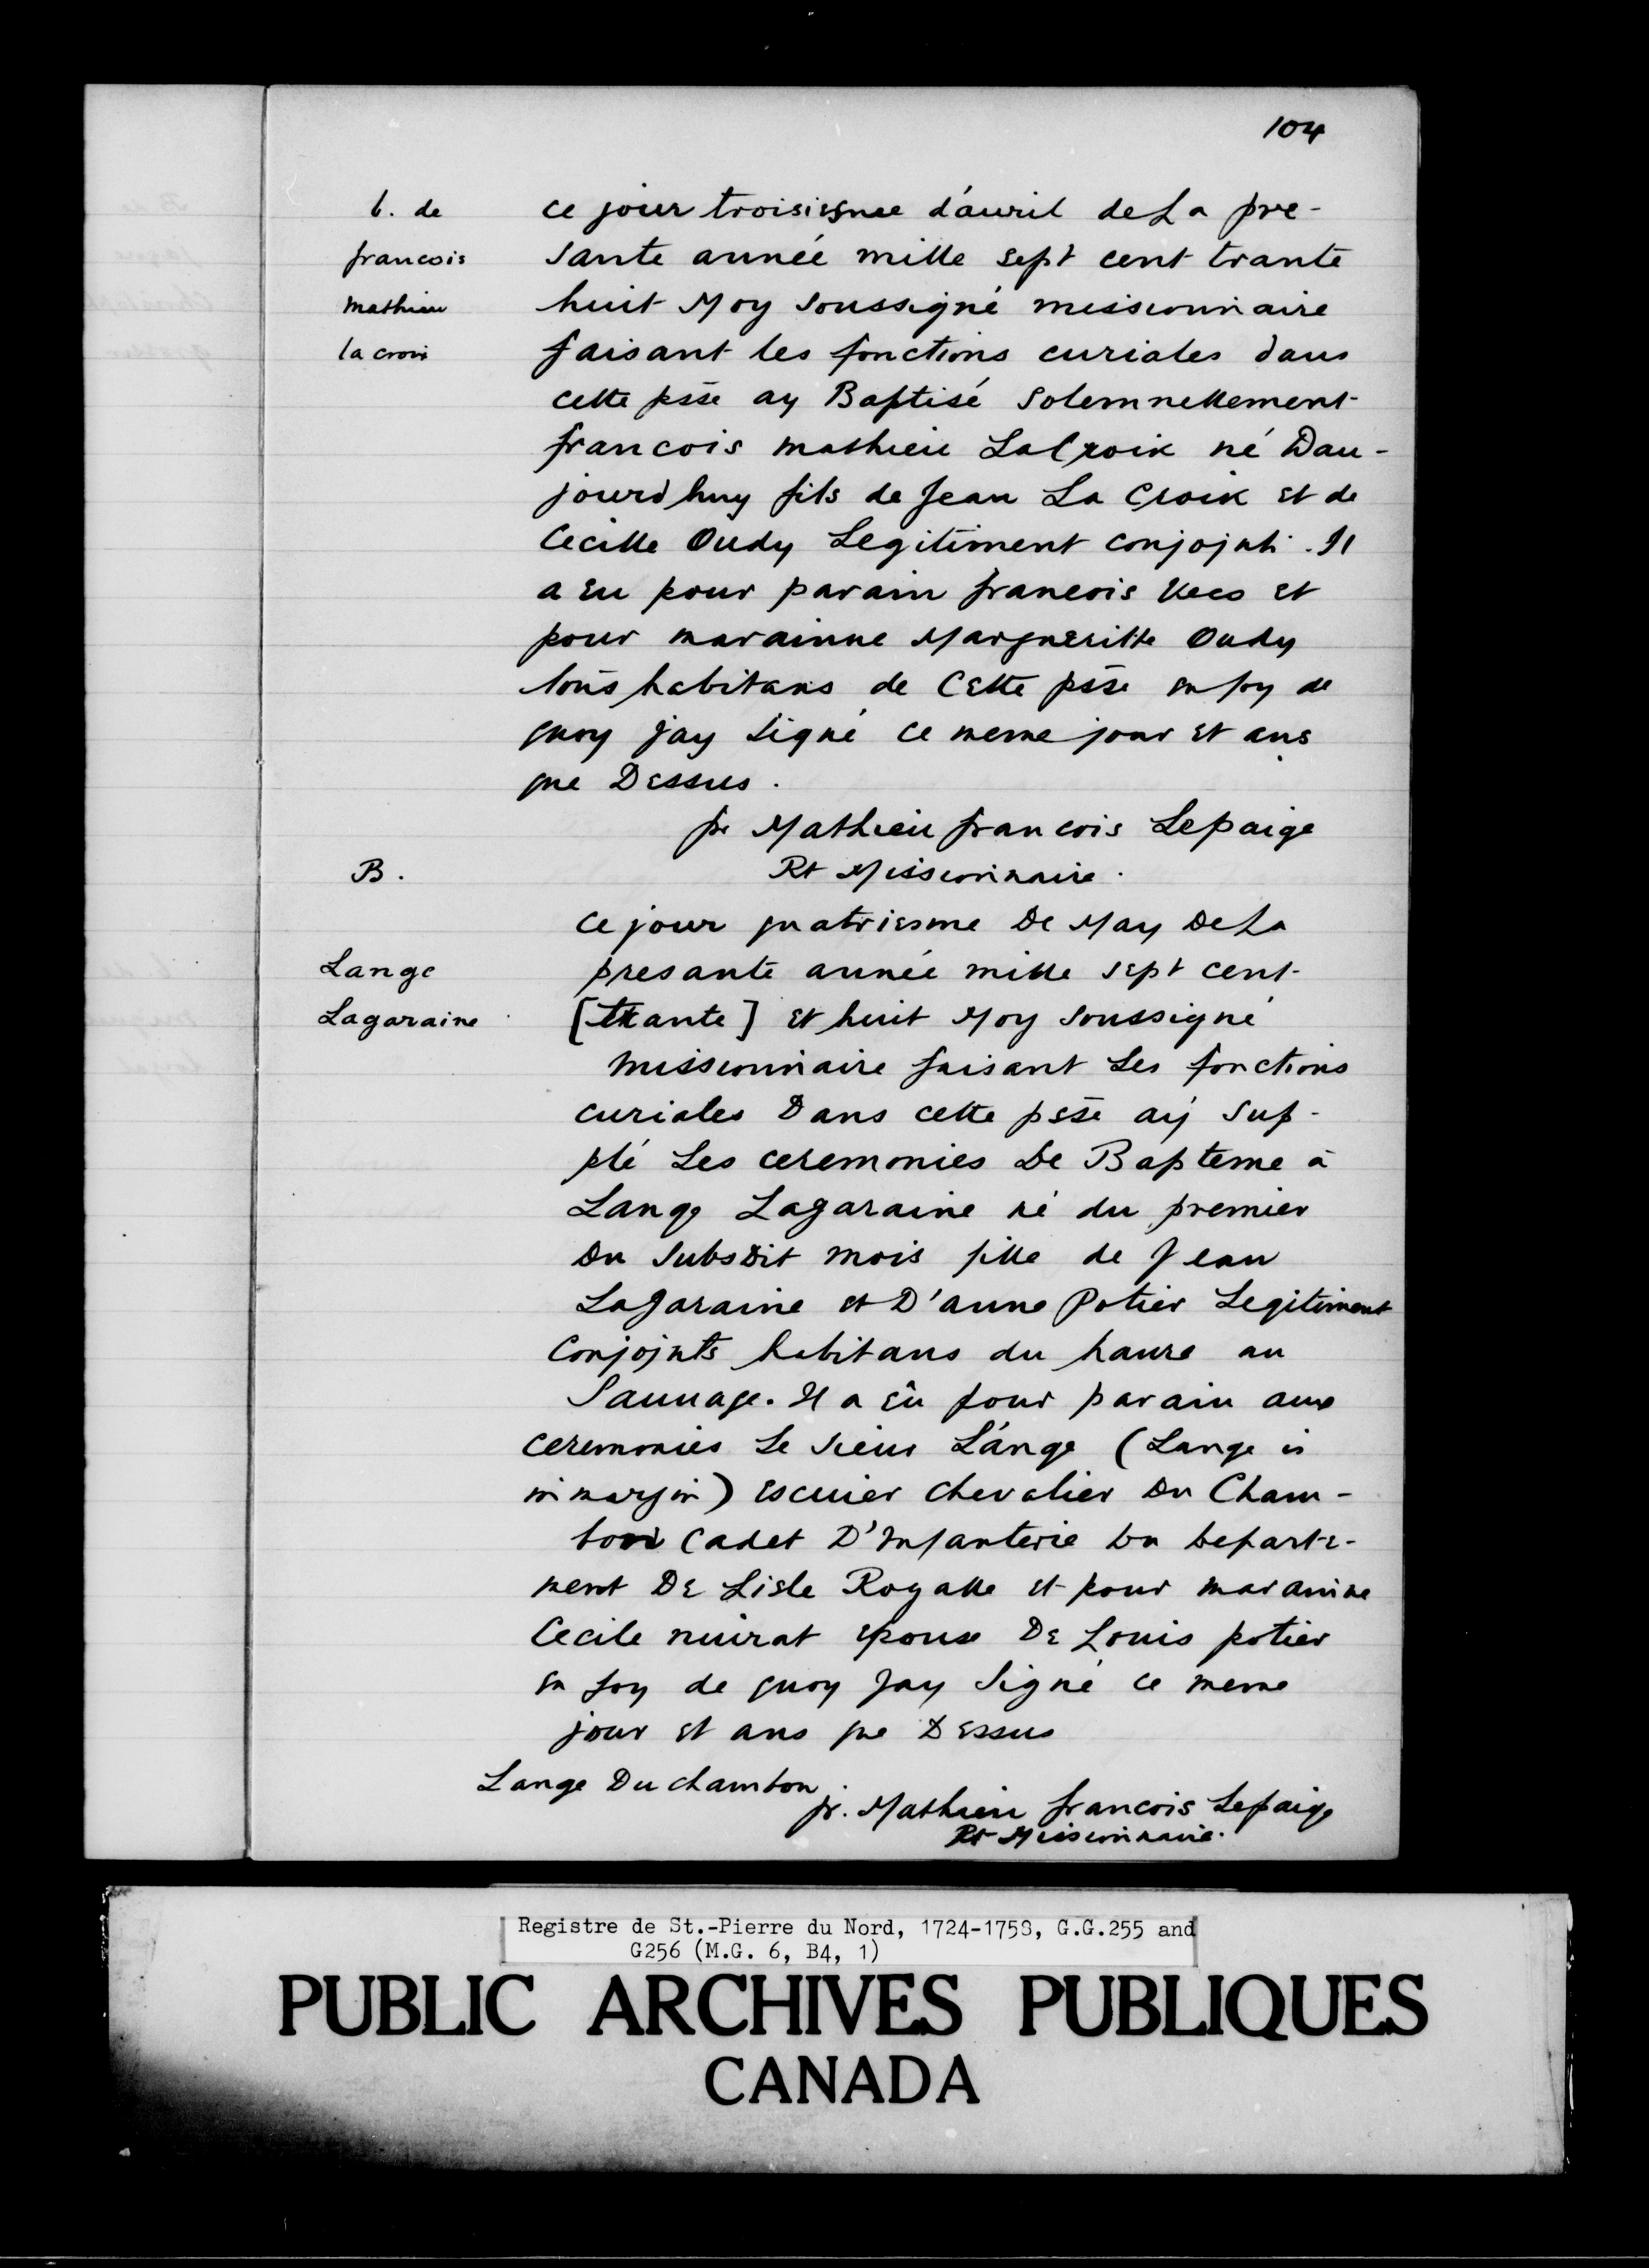 104
b. de
francois
mathieu
la croix
ce jour troisiesme d'auril de La pre-
sante année mille sept cent trante
huit Moy soussigné missionnaire
faisant les fonctions curiales dans
cette psse ay Baptisé solemnellement
francois mathieu LaCroix né Dau-
jourdhuy fils de Jean La Croix et de
Cecille Oudy Legitiment conjojnti. Il
a eu pour parain francois Vecs et
pour marainne Margueritte Oudy
tous habitans de Cette psse en foy de
quoy jay signé ce meme jour et ans
que Dessus.
fr Mathieu francois Lepaige
Rt Missionnaire.
B.
Lange
Lagaraine
ce jour quatriesme De May De La
presante année mille sept cent
[trante] et huit Moy soussigné
missionnaire faisant Les fonctions
curiales Dans cette psse aÿ sup-
plé Les ceremonies De Bapteme à
Lange Lagaraine né du premier
Du subsdit mois fille de Jean
Lagaraine et D'anne Potier Legitiment
Conjojnts habitans du haure au
Sauuage. Il a eû pour parain aux
ceremonies Le sieur L'ange (Lange is
in margin) escuier chevalier Du Cham-
bon Cadet D'Infanterie Du Departe-
ment De Lisle Royalle et pour marainne
Cecile nuirat epouse De Louis potier
en foy de quoy Jay signé ce meme
jour et ans que Dessus
Lange Du chambon
fr. Mathieu francois Lepaige
Rt Missionnaire.
Registre de St.-Pierre du Nord, 1724-1758, G.G.255 and
G256 (M.G. 6, B4, 1)
PUBLIC ARCHIVES PUBLIQUES
CANADA